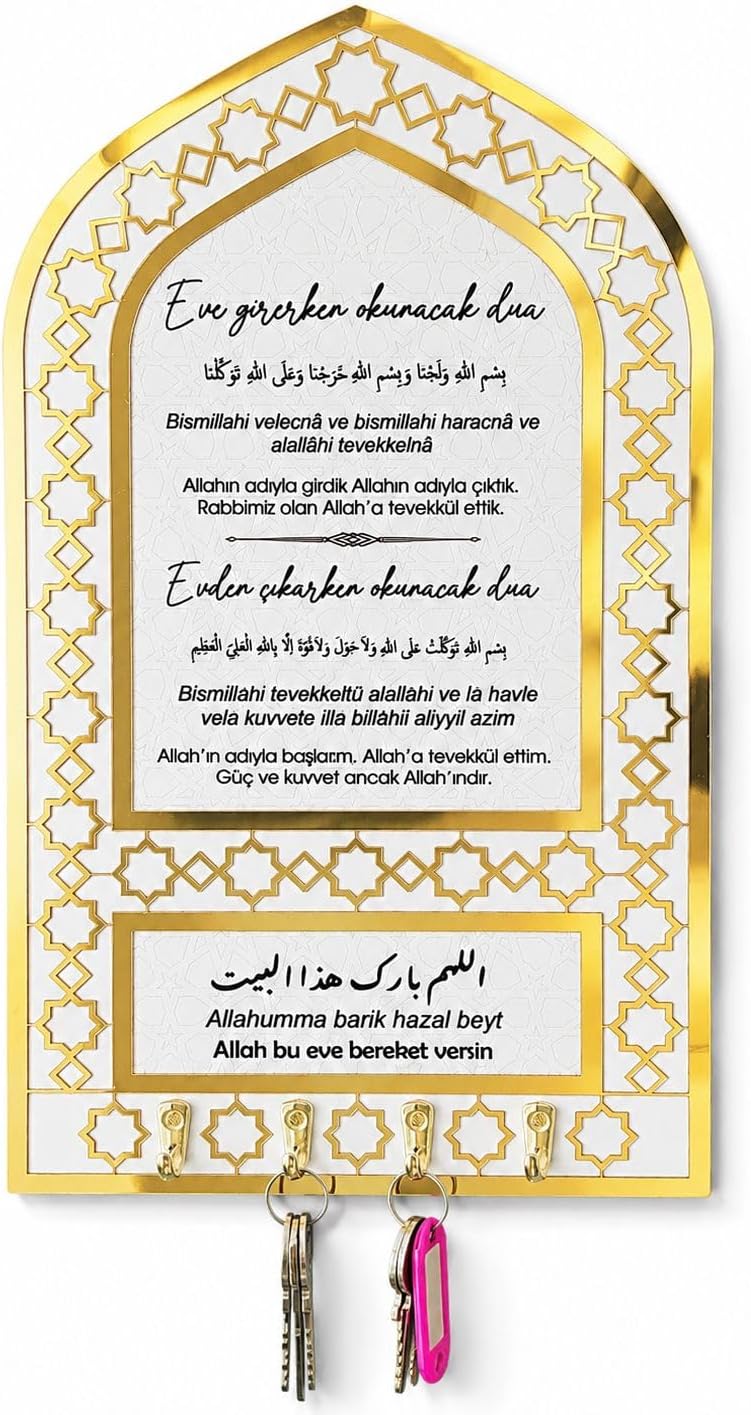 Eve girerken okunacak dua
بِسْمِ اللهِ وَلَجْنَا وَبِسْمِ اللهِ خَرَجْنَا وَعَلَى اللهِ تَوَكَّلْنَا
Bismillahi velecnâ ve bismillahi haracnâ ve
alallâhi tevekkelnâ
Allahın adıyla girdik Allahın adıyla çıktık.
Rabbimiz olan Allah'a tevekkül ettik.
Evden çıkarken okunacak dua
بِسْمِ اللهِ تَوَكَّلْتُ عَلَى اللهِ وَلاَ حَوْلَ وَلاَ قُوَّةَ اِلَّا بِاللهِ الْعَلِيِّ الْعَظِيمِ
Bismillâhi tevekkeltü alallâhi ve lâ havle
velâ kuvvete illâ billâhil aliyyil azim
Allah'ın adıyla başlarım. Allah'a tevekkül ettim.
Güç ve kuvvet ancak Allah'ındır.
اللهم بارك هذا البيت
Allahumma barik hazal beyt
Allah bu eve bereket versin